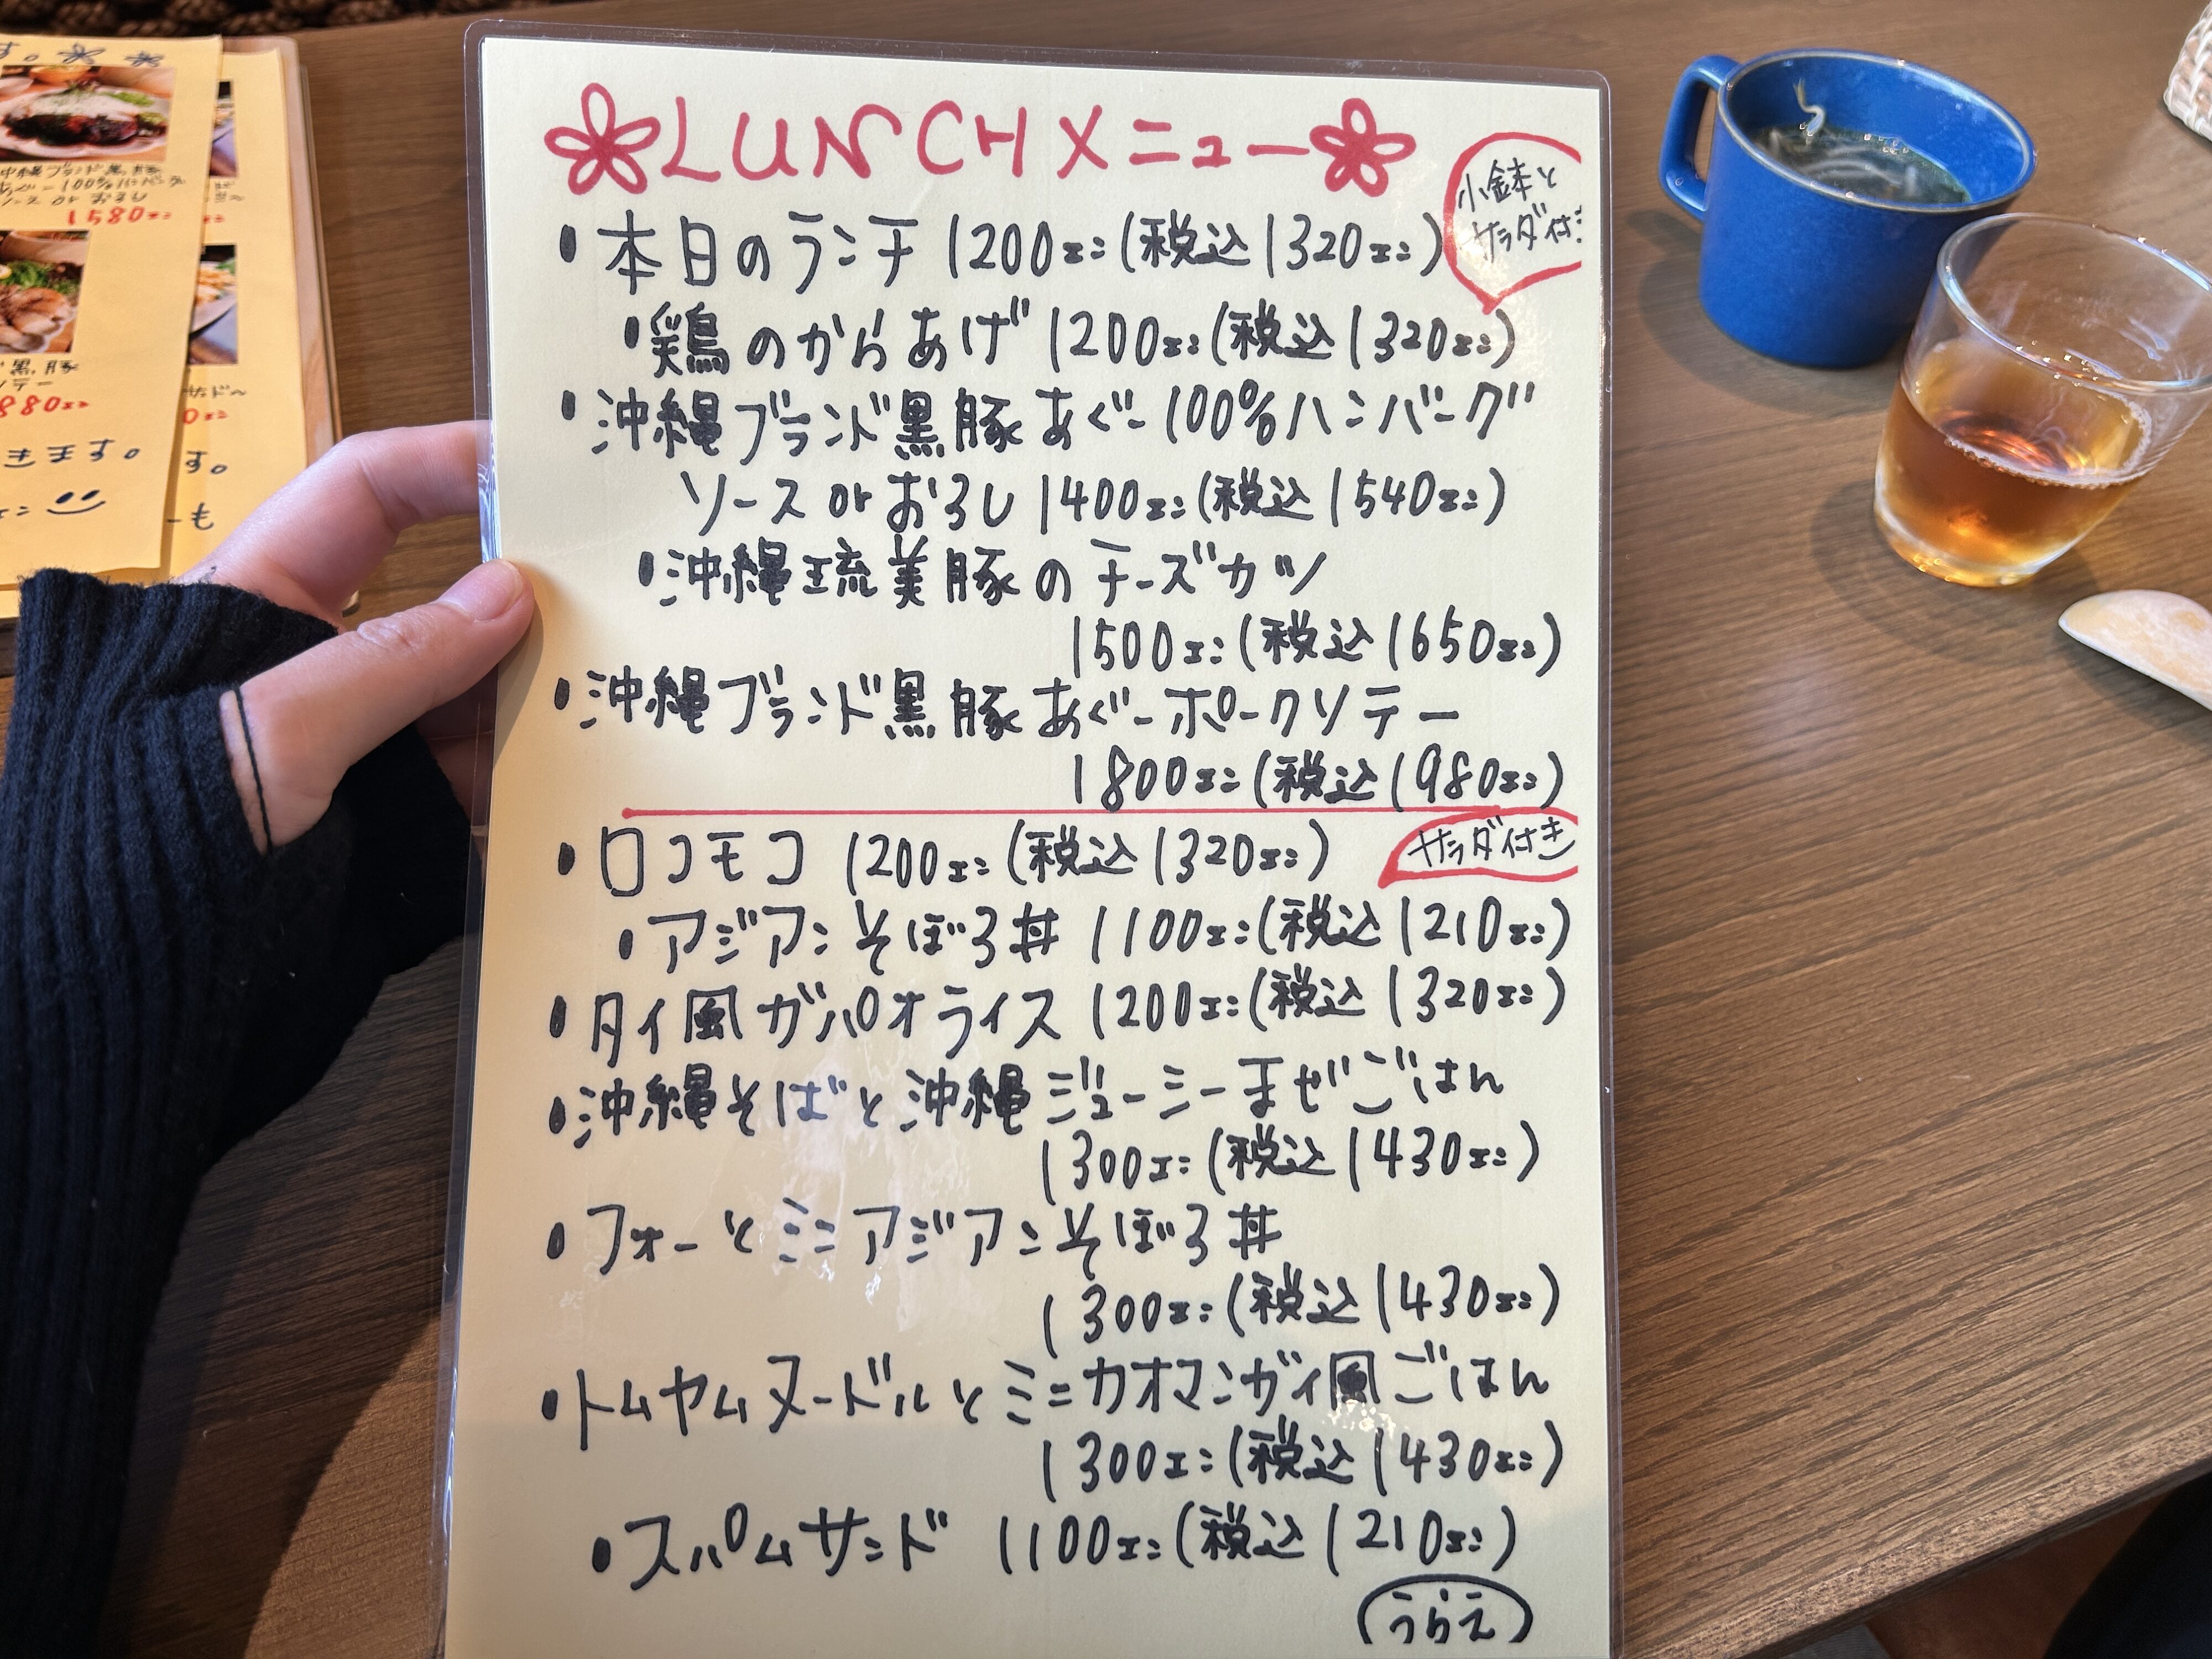 LUNCHメニュー
小鉢と
サラダ付
・本日のランチ 1200エン(税込1320エン)
・鶏のからあげ 1200エン(税込1320エン)
・沖縄ブランド黒豚あぐー100%ハンバーグ
ソース or おろし 1400エン(税込1540エン)
・沖縄琉美豚のチーズカツ
1500エン(税込1650エン)
・沖縄ブランド黒豚あぐーポークソテー
1800エン(税込1980エン)
サラダ付き
・ロコモコ 1200エン(税込1320エン)
・アジアンそぼろ丼 1100エン(税込1210エン)
・タイ風ガパオライス 1200エン(税込1320エン)
・沖縄そばと沖縄ジューシーまぜごはん
1300エン(税込1430エン)
・フォーとミニアジアンそぼろ丼
1300エン(税込1430エン)
・トムヤムヌードルとミニカオマンガイ風ごはん
1300エン(税込1430エン)
・スパムサンド 1100エン(税込1210エン)
うらえ
す。
沖縄ブランド黒豚
あぐー100%ハンバーグ
ソース or おろし
1580エン
黒豚
ソテー
880エン
きます。
す。
ーも